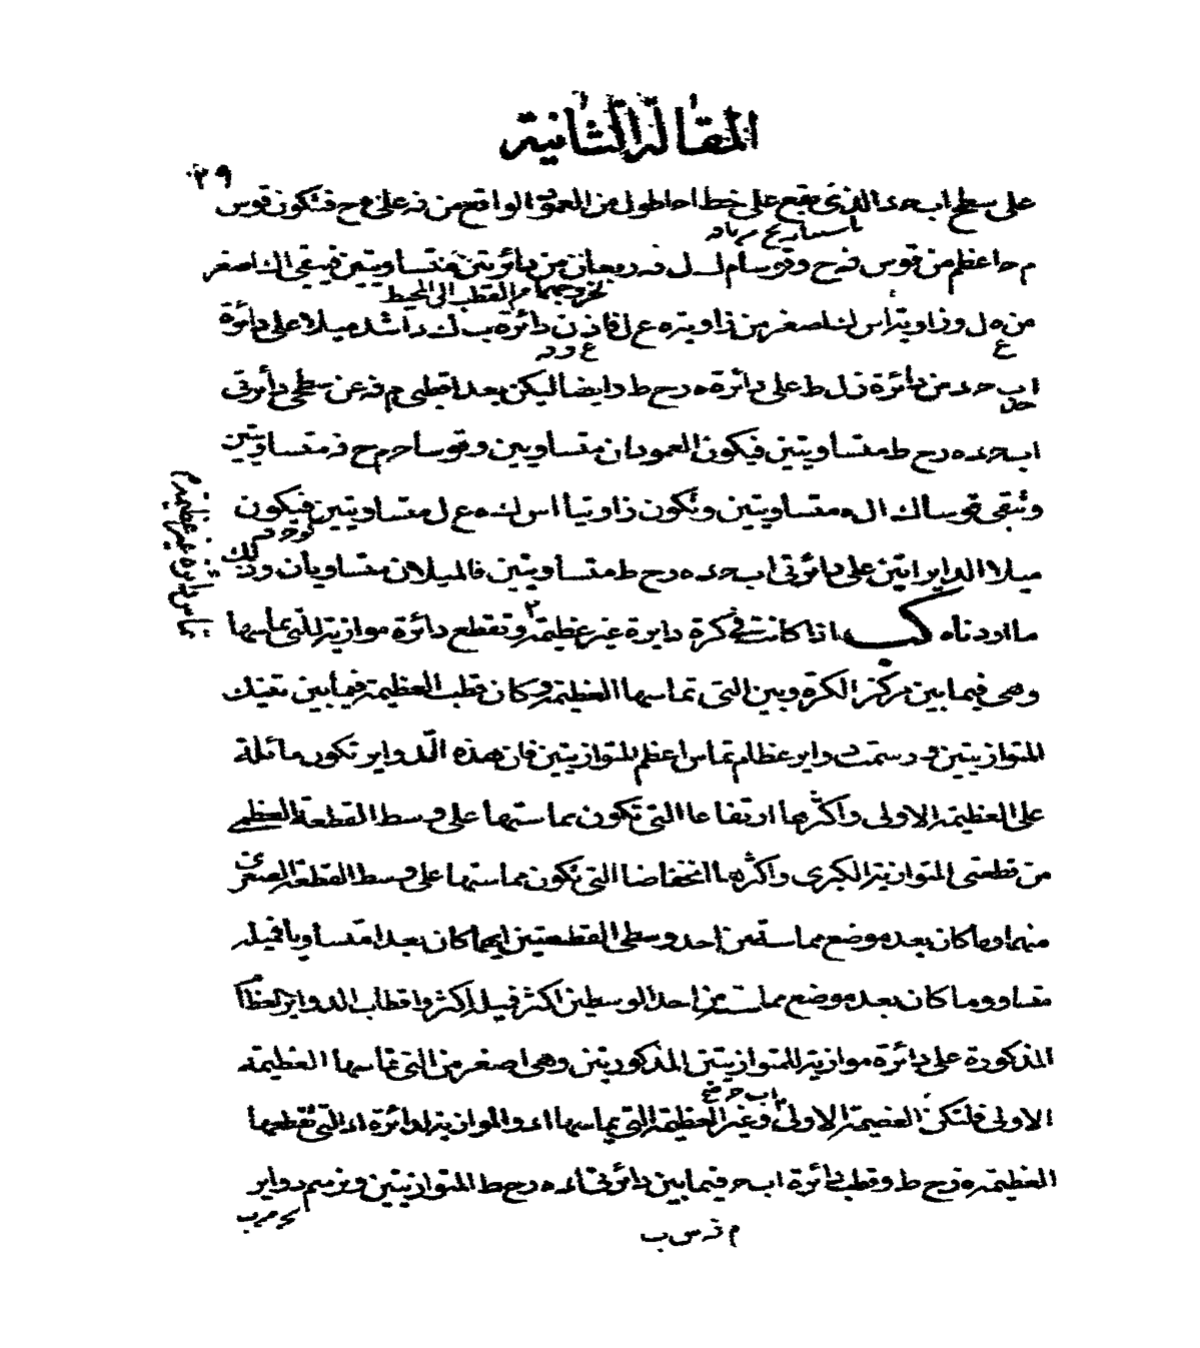 المقالة الثانية
٣٩
على سطح اب حد الذي يقع على خط احا طول من العمود الواقع من نه على ح فتكون قوس
م حا اعظم من قوس نه ح وقوسا م ل ل نه ربعان من دائرتين متساويتين فيبقى ا ك اصغر
بخروجهما من القطب الى المحيط
من ه ل وزاوية اس ك اصغر من زاوية ه ع ل فاذن دائرة ب ك د اشد ميلا على دائرة
اب حد من دائرة ز ل ط على دائرة ه رح ط د ايضا ليكن بعدا قطبي م نه عن سطحي دائرتي
اب حد ه رح ط متساويتين فيكون العمودان متساويين وقوسا حم ح نه متساويتين
وتبقى قوسا ا ك ل ه متساويتين وتكون زاويتا اس ك ه ع ل متساويتين فيكون
ميلا الدايرايتين على دائرتي اب حد ه رح ط متساويتين فالميلان متساويان وذلك
ما اردناه كب اذا كانت في كرة دايرة غير عظيمة وتقطع دائرة موازية للتي تماسها
تماس دائرة غير عظيمة م
وهي فيما بين مركز الكرة وبين التي تماسها العظيمة وكان قطب العظيمة فيما بين تينك
المتوازيتين ورسمت دواير عظام تماس اعظم المتوازيتين فان هذه الدواير تكون مائلة
على العظيمة الاولى واكثرها ارتفاعا التي تكون مماستها على وسط القطعة العظمى
من قطعتي المتوازية الكبرى واكثرها انخفاضا التي تكون مماستها على وسط القطعة الصغرى
منهما وما كان بعد موضع مماسته من احد وسطي القطعتين ايهما كان بعدا متساويا فميله
متساو وما كان بعد موضع مماسته من احد الوسطين اكثر فميله اكثر واقطاب الدواير العظام
المذكورة على دائرة موازية للمتوازيتين المذكورتين وهي اصغر من التي تماسها العظيمة
الاولى فلتكن العظيمة الاولى اب ح وغير العظيمة التي يماسها اء والموازية لدائرة اء التي تقطعها
العظيمة ه رح ط وقطب دائرة اب ح فيما بين دائرتي اء ه رح ط المتوازيتين ونرسم دواير
م نه س ب